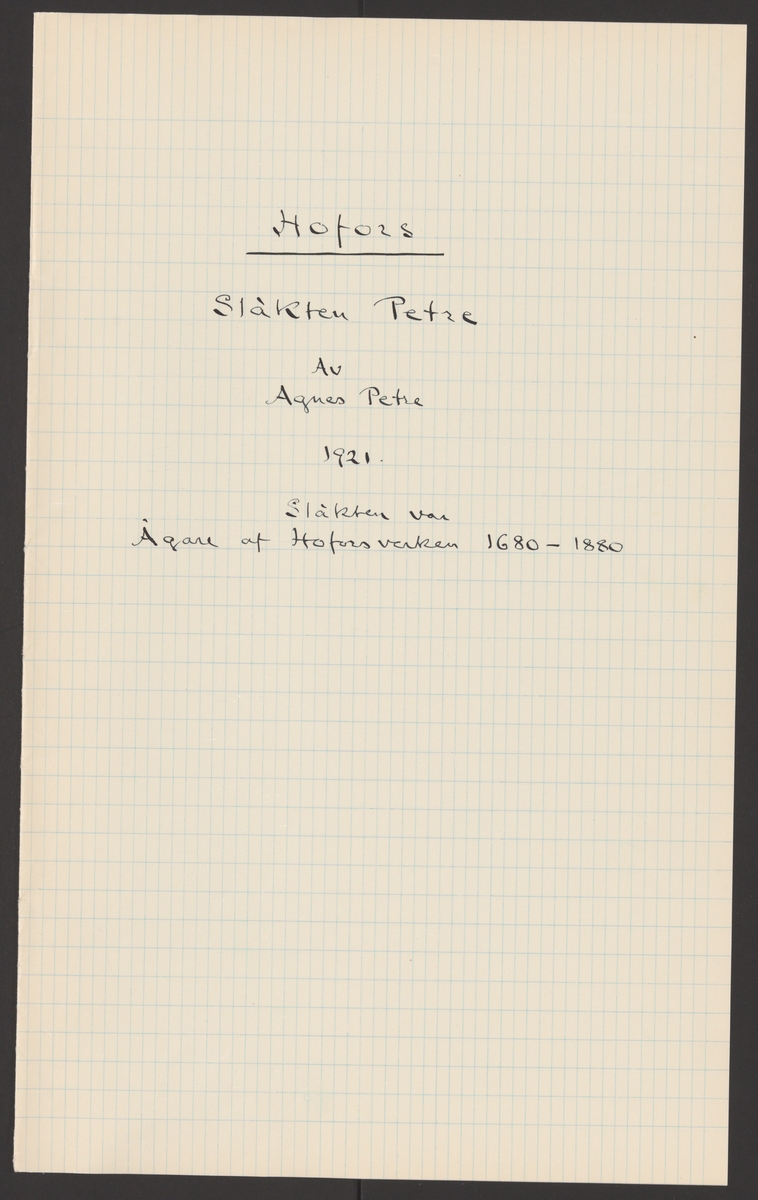 Hofors
Släkten Petre
Av
Agnes Petre
1921.
Släkten var
Ägare af Hoforsverken 1680 – 1880